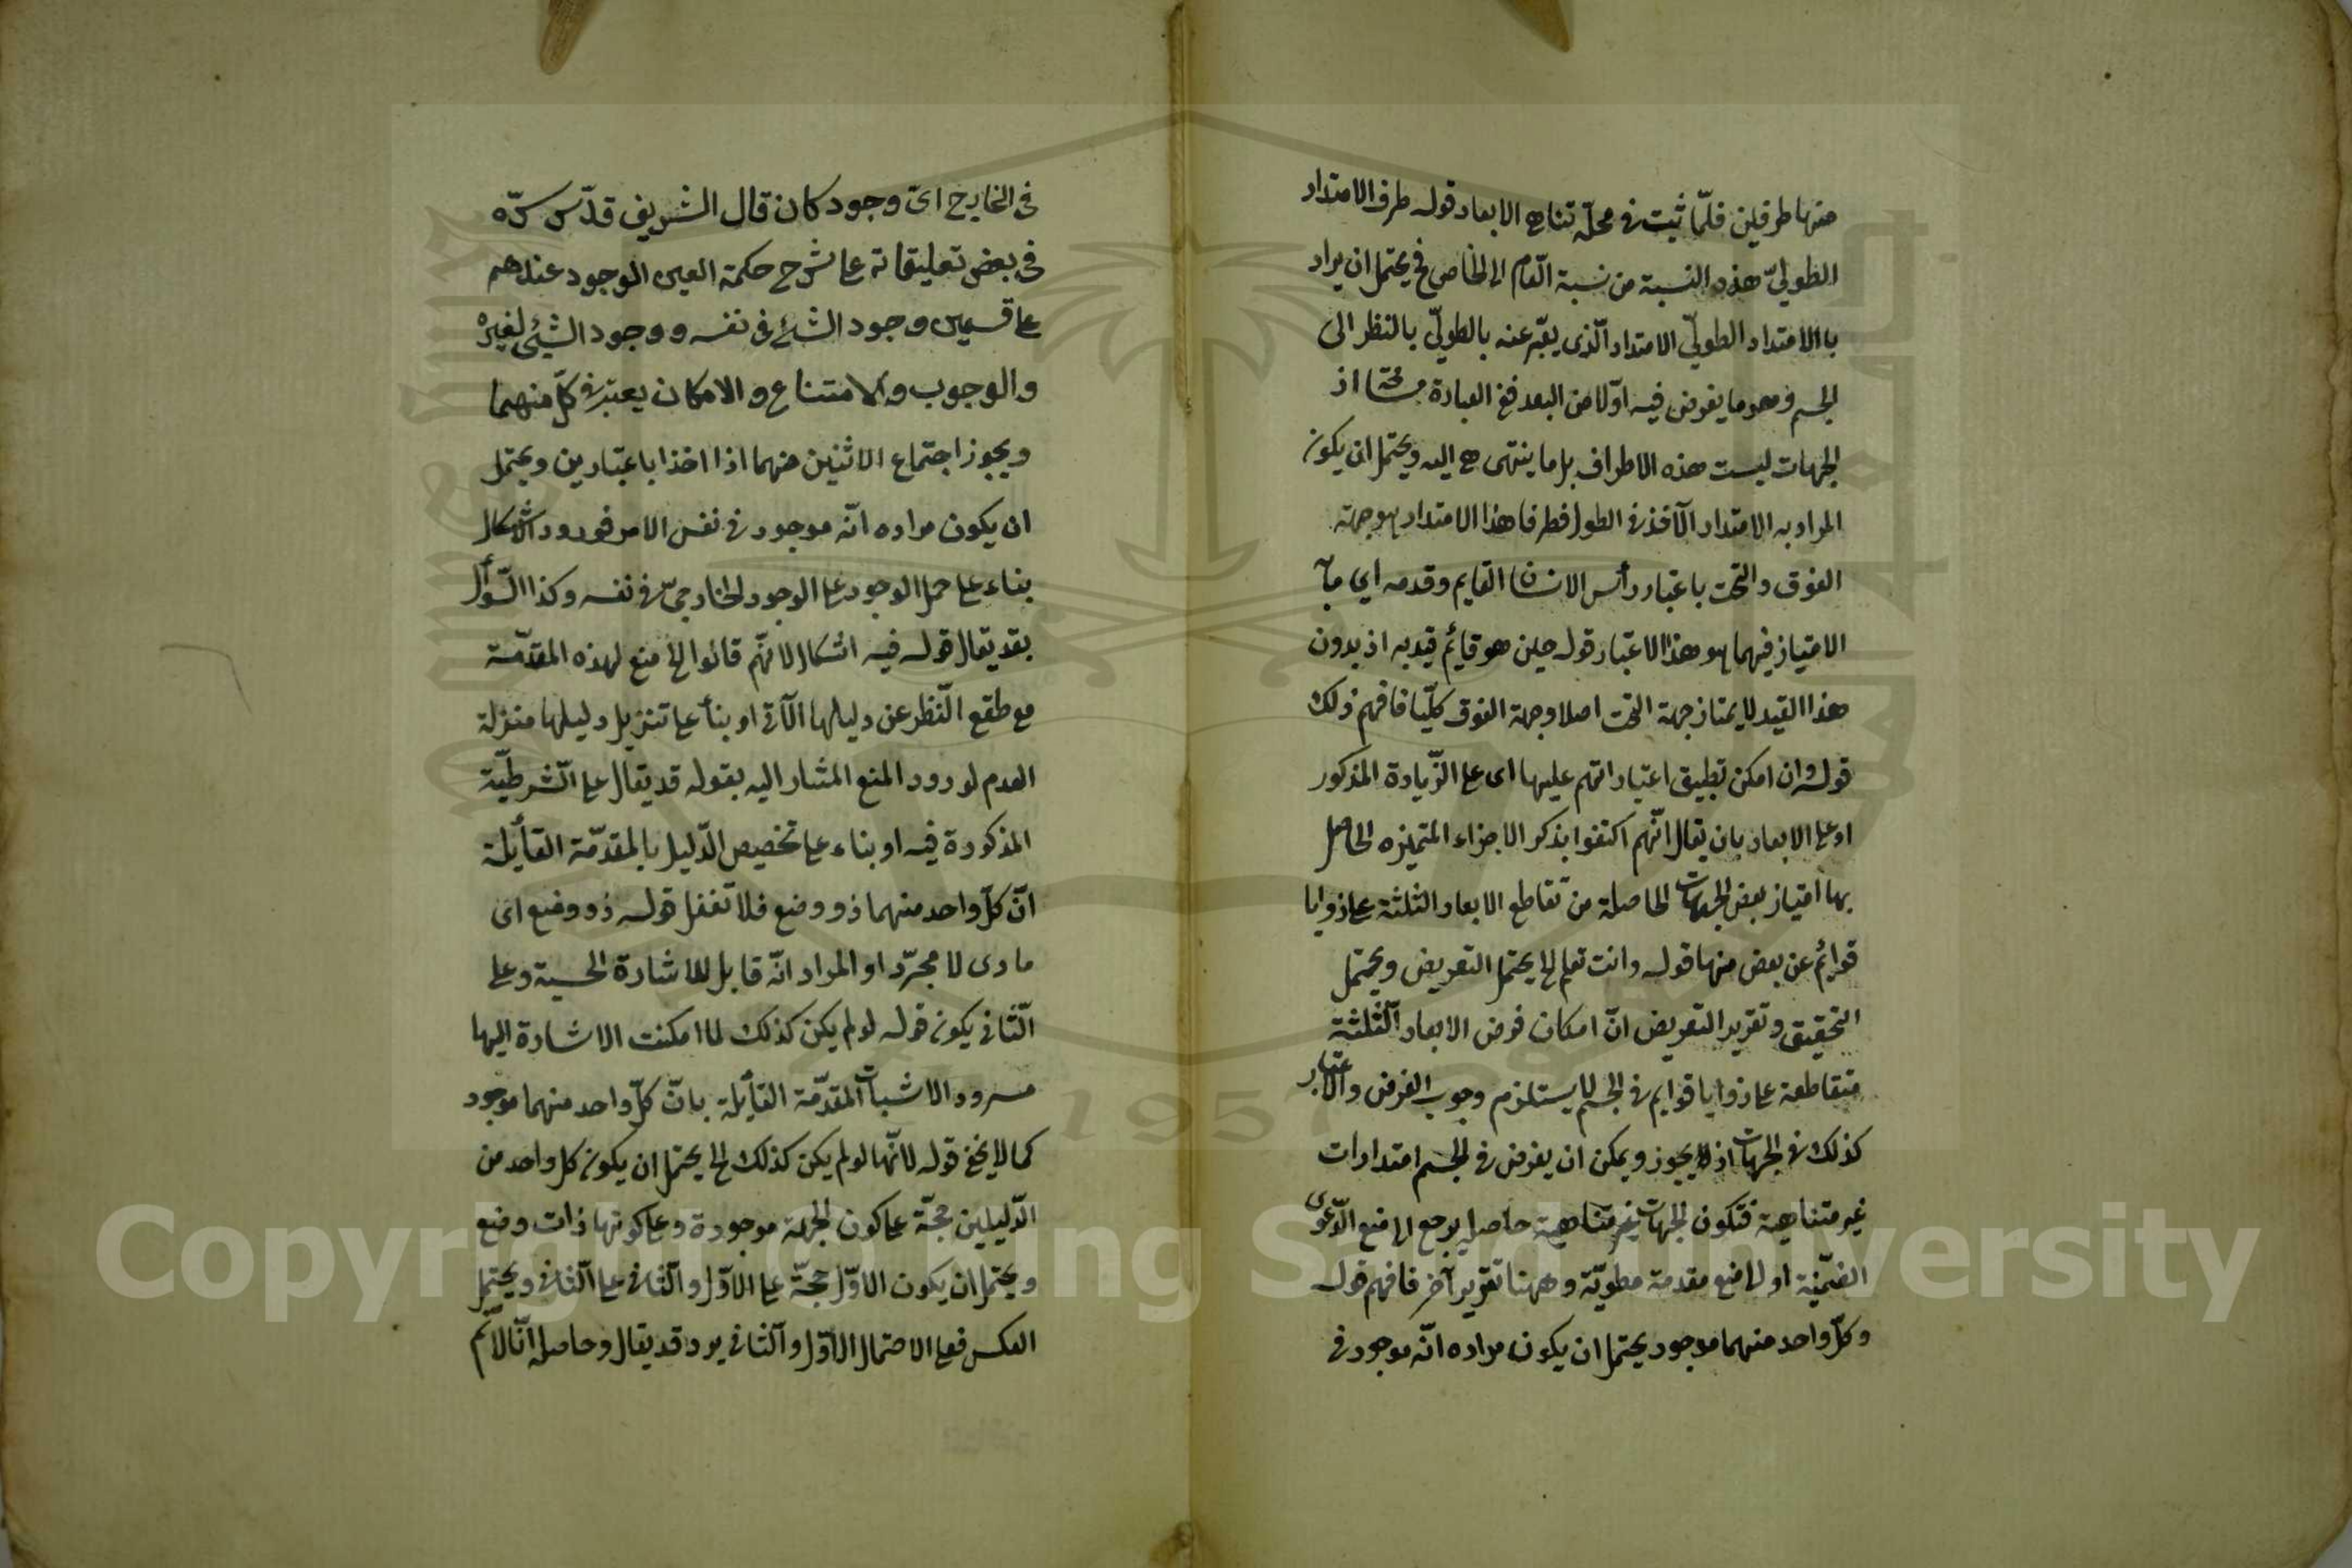 منها طرفين فلمّا ثبت فى محلّه تناهى الابعاد قوله طرف الامتداد
الطوليّ هذه النسبة من نسبة العام الى الخاص فح يحتمل ان يراد
باالامتداد الطوليّ الامتداد الّذى يعبّر عنه بالطوليّ بالنظر الى
الجسم وهو ما يفرض فيه اوّلا من البعد ففى العبادة اذ
الجهات ليست هذه الاطراف بل ما ينتهى هى اليه ويحتمل ان يكون
المراد به الامتداد الآخذ فى الطول فطرفا هذا الامتداد هو جهة
الفوق والتحت باعتبار رأس الانسان القايم وقدمه اي مآ
الامتياز فيهما هو هذا الاعتبار قوله حين هو قائم قيد به اذ بدون
هذا القيد لا يمتاز جهة التحت اصلا وجهة الفوق كلّيا فافهم ذلك
قوله وان امكن تطبيق اعتباراتهم عليها اى على الزّيادة المذكور
او على الابعاد بان يقال انّهم اكتفوا بذكر الاجزاء المتميزه الحاصل
بها امتياز بعض الجهات الحاصلة من تقاطع الابعاد الثلثة على زوايا
قوائم عن بعض منها قوله وانت تعلم الخ يحتمل التعريض ويحتمل
التحقيق وتقرير التعريض انّ امكان فرض الابعاد الثلثة
متقاطعة على زوايا قوايم فى الجسم لا يستلزم وجوب الفرض والاعتبار
كذلك فى الجهات اذ لا يجوز ويمكن ان يفرض فى الجسم امتدادات
غير متناهية فتكون الجهات غير متناهية حاصله يرجع الى منع الدّعوى
الضمّنيّة او الى منع مقدمة مطويّة وههنا تقرير آخر فافهم قوله
وكلّ واحد منهما موجود يحتمل ان يكون مراده انّه موجود فى
فى الخارج اىّ وجود كان قال الشريف قدّس سرّه
فى بعض تعليقاته على شرح حكمة العين الوجود عندهم
على قسمين وجود الشئ فى نفسه ووجود الشئ لغيره
والوجوب والامتناع والامكان يعتبر فى كلّ منهما
ويجوز اجتماع الاثنين منهما اذا اخذا باعتبارين ويحتمل
ان يكون مراده انّه موجود فى نفس الامر فورود الاشكال
بناء على حمل الوجود على الوجود الخارجىّ فى نفسه وكذا السّؤال
بقد يقال قوله فيه اشكال لانّهم قالوا الخ منع لهذه المقدّمة
مع طقع النّظر عن دليلها الآتى او بنأ على تنزيل دليلها منزلة
العدم لورود المنع المشار اليه بقوله قد يقال على الشّرطيّة
المذكورة فيه او بناء على تخصيص الدّليل بالمقدّمة القأيلة
انّ كلّ واحد منهما ذو وضع فلا تغفل قوله ذو وضع اى
مادى لا مجرّد او المراد انّه قابل للاشارة الحسية وعلى
الثّانى يكون قوله لو لم يكن كذلك لما امكنت الاشارة اليها
مسرود الاثبات المقدّمة القأيلة بانّ كلّ واحد منهما موجود
كما لا يخفى قوله لانّها لو لم يكن كذلك الخ يحتمل ان يكون كل واحد من
الدّليلين حجّة على كون الجهة موجودة وعلى كونها ذات وضع
ويحتمل ان يكون الاوّل حجّة على الاوّل والثّانى على الثّانى ويحتمل
العكس فعلى الاحتمال الاوّل والثانى يرد قد يقال وحاصله انّا لا نّم